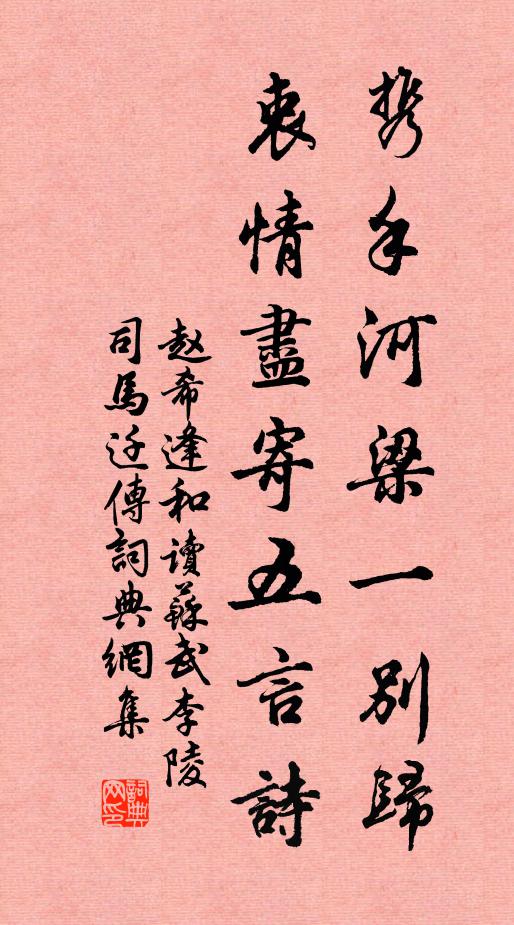 携手河梁一別歸
衷情盡寄五言詩
赵希逢和讀蘇武李陵
司馬迁傳詞典網集
詞典网印